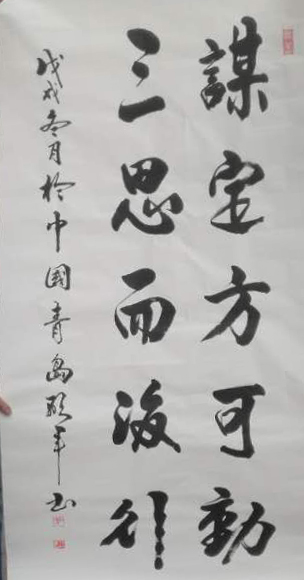 謀定方可動
三思而後行
戊戌冬月於中國青島順年书